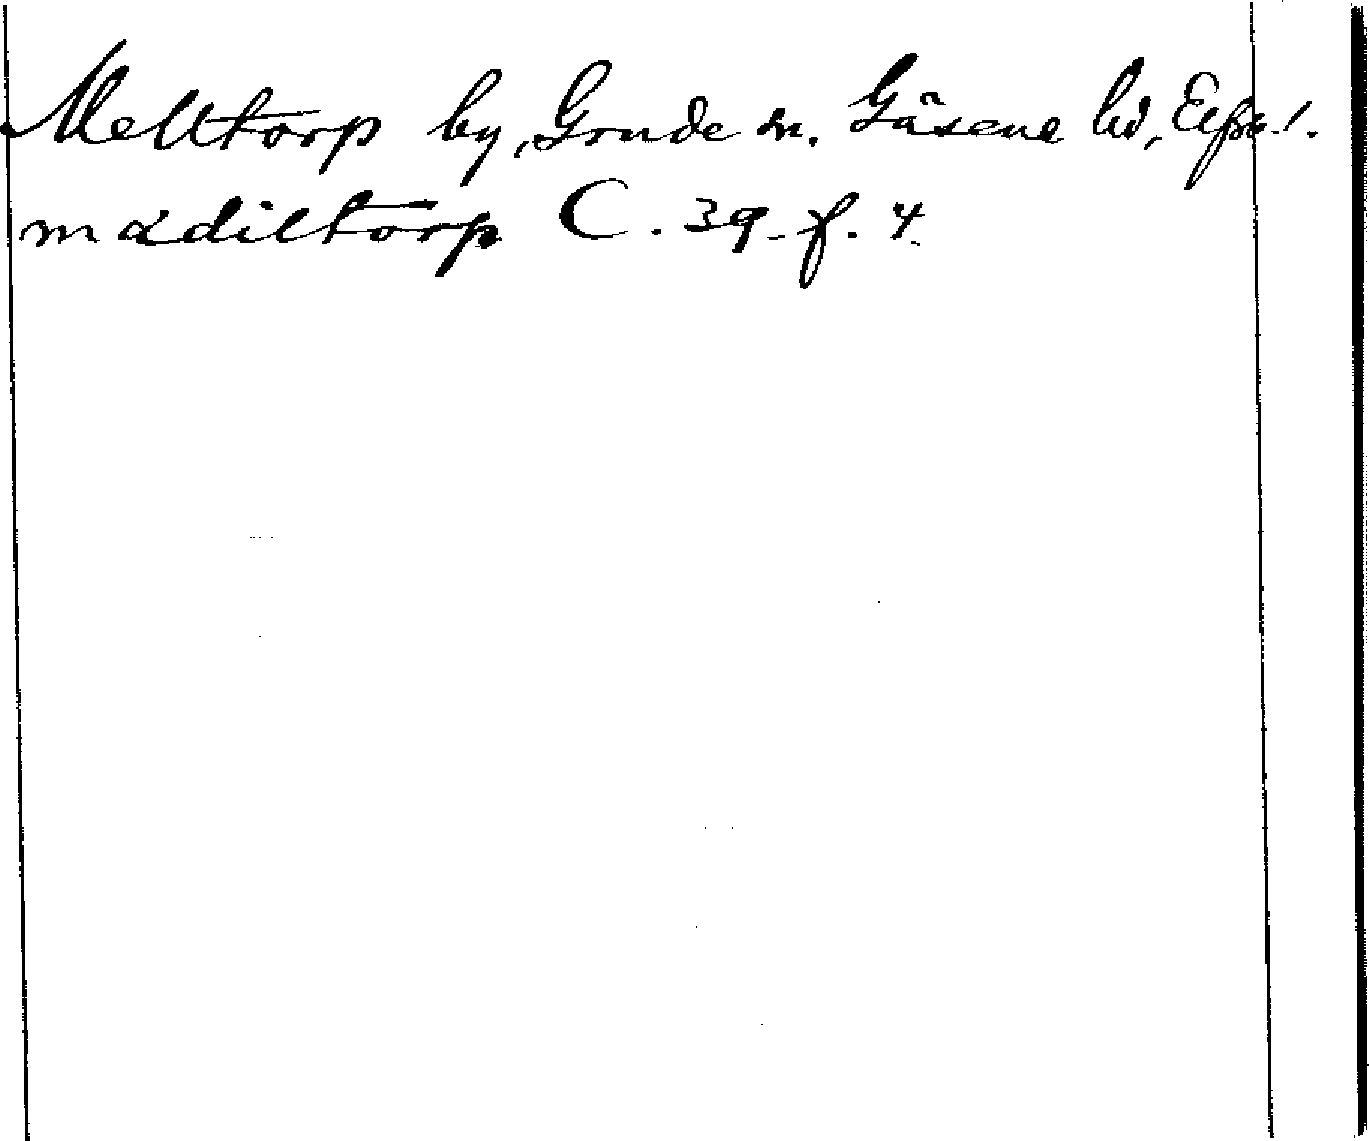 Melltorp by, Grude sn. Gäsene hd, Elfsb. l.
mädiltorp C. 39. f. 4